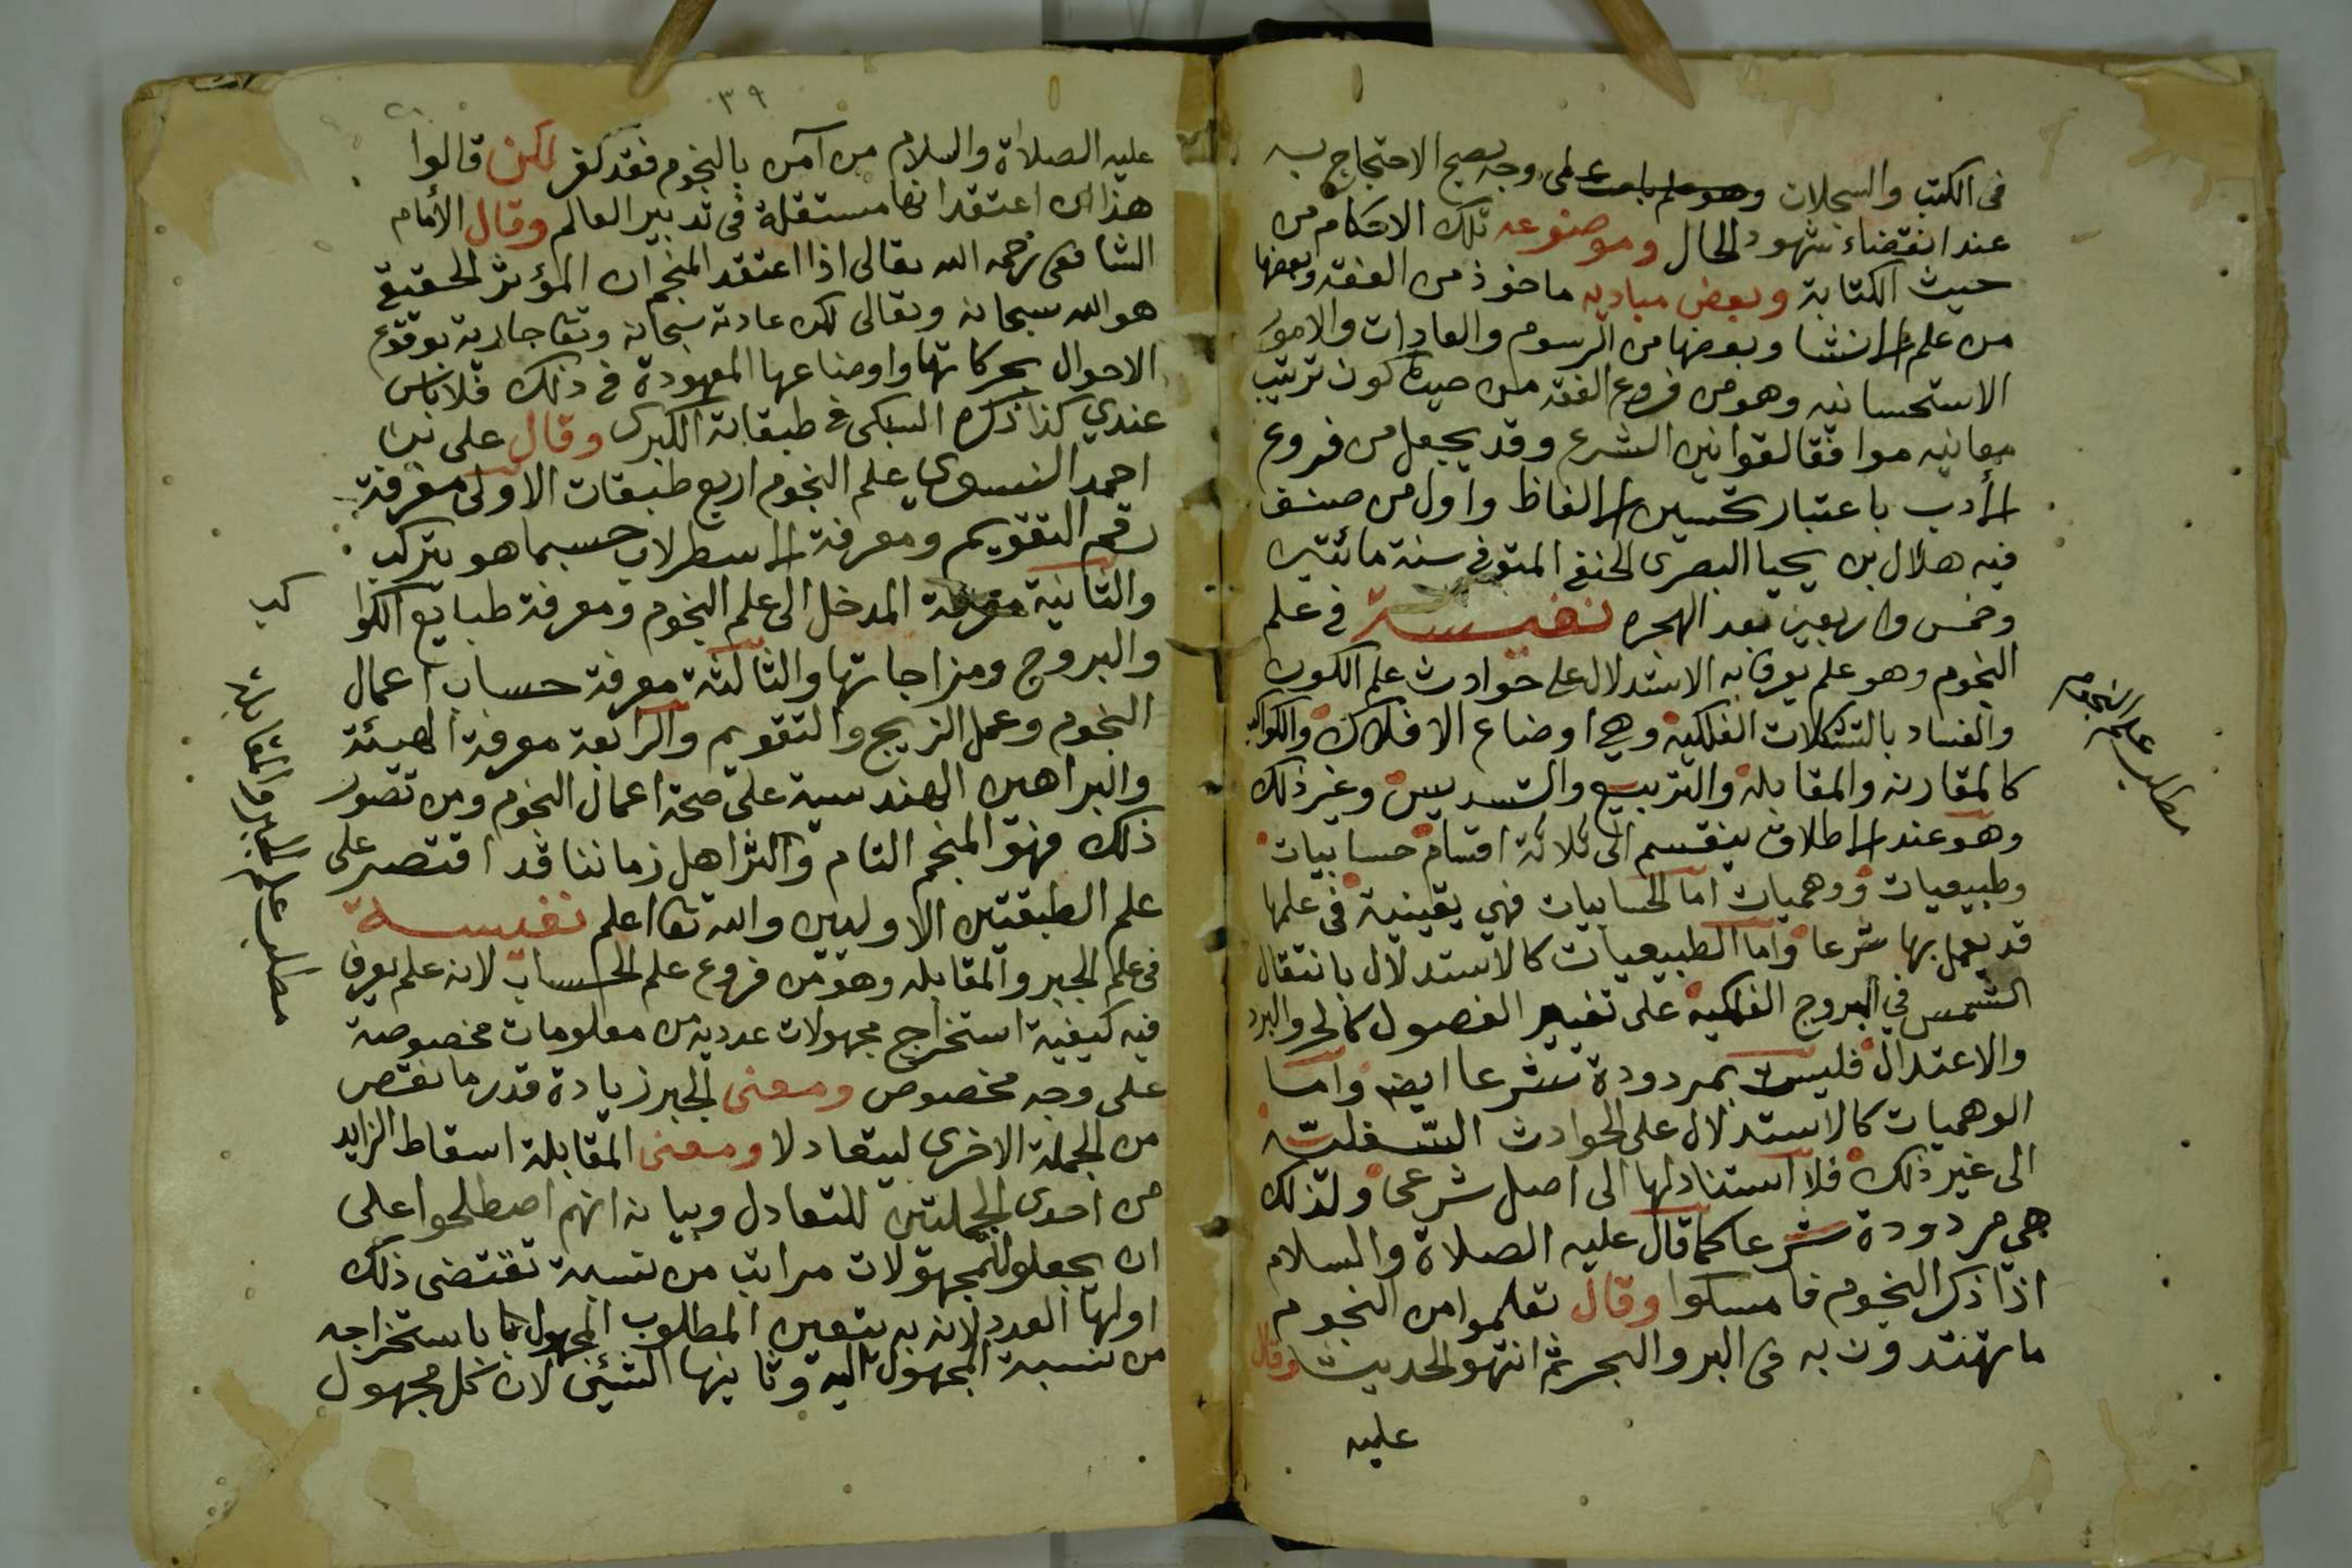 في الكتب والسجلات وهو علم باحث على وجه يصح الاحتجاج به
عند انقضاء شهود الحال وموضوعه تلك الاحكام من
حيث الكتابة وبعض مباديه ماخوذ من الفقه وبعضها
من علم الانشا وبعضها من الرسوم والعادات والامور
الاستحسانيه وهو من فروع الفقه من حيث كون ترتيب
معانيه موافقا لقوانين الشرع وقد يجعل من فروع
الأدب باعتبار تحسين الالفاظ واول من صنف
فيه هلال بن يحيا البصرى الحنفي المتوفي سنة مائتين
وخمس واربعين بعد الهجره نفيسة في علم
النجوم وهو علم يعرف به الاستدلال على حوادث علم الكون
والفساد بالتشكلات الفلكية وهي اوضاع الافلاك والكواكب
كالمقارنه والمقابله والتربيع والتسديس وغير ذلك
وهو عند الاطلاق ينقسم الى ثلاثة اقسام حسابيات
وطبيعيات ووهميات اما الحسابيات فهي يقينية في علمها
قد يعمل بها شرعا واما الطبيعيات كالاستدلال بانتقال
الشمس في البروج الفلكيه على تغيير الفصول كالحر والبرد
والاعتدال فليست بمردودة شرعا ايضا واما
الوهميات كالاستدلال على الحوادث السفلية
الى غير ذلك فلا استناد لها الى اصل شرعى ولذلك
هي مردودة شرعا كما قال عليه الصلاة والسلام
اذا ذكر النجوم فامسكوا وقال تعلموا من النجوم
ما تهتدون به في البر والبحر ثم انتهوا الحديث وقال
عليه
مطلب علم النجوم
٣٩
عليه الصلاة والسلام من آمن بالنجوم فقد كفر لكن قالوا
هذا ان اعتقد انها مستقلة في تدبير العالم وقال الأمام
الشافعى رحمه الله تعالى اذا اعتقد المنجم ان المؤثر الحقيقي
هو الله سبحانه وتعالى لكن عادته سبحانه وتعا جارية بوقوع
الاحوال بحركاتها واوضاعها المعهودة في ذلك فلا باس
عندي كذا ذكره السبكى في طبقاته الكبرى وقال على بن
احمد النسوى علم النجوم اربع طبقات الاولى معرفة
رقم التقويم ومعرفة الاسطرلاب حسبما هو يتركب
والثانية معرفة المدخل الى علم النجوم ومعرفة طبايع الكوا
كب
والبروج ومزاجاتها والثالثة معرفة حساب اعمال
النجوم وعمل الزيج والتقويم والرابعة معرفة الهيئة
والبراهين الهندسية على صحة اعمال النجوم ومن تصور
ذلك فهو المنجم التام واكثر اهل زماننا قد اقتصر على
علم الطبقتين الاوليين والله تعا اعلم نفيسة
في علم الجبر والمقابله وهو من فروع علم الحساب لانه علم يعرف
فيه كيفية استخراج مجهولات عدديه من معلومات مخصوصة
على وجه مخصوص ومعنى الجبر زيادة قدر ما نقص
من الجملة الاخرى ليتعادلا ومعنى المقابلة اسقاط الزايد
من احدى الجملتين للتعادل وبيانه انهم اصطلحوا على
ان يجعلوا للمجهولات مراتب من نسبة تقتضى ذلك
اولها العدد لانه به يتعين المطلوب المجهول باستخراجه
من نسبة المجهول اليه وثانيها الشئ لان كل مجهول
مطلب علم الجبر والمقابلة